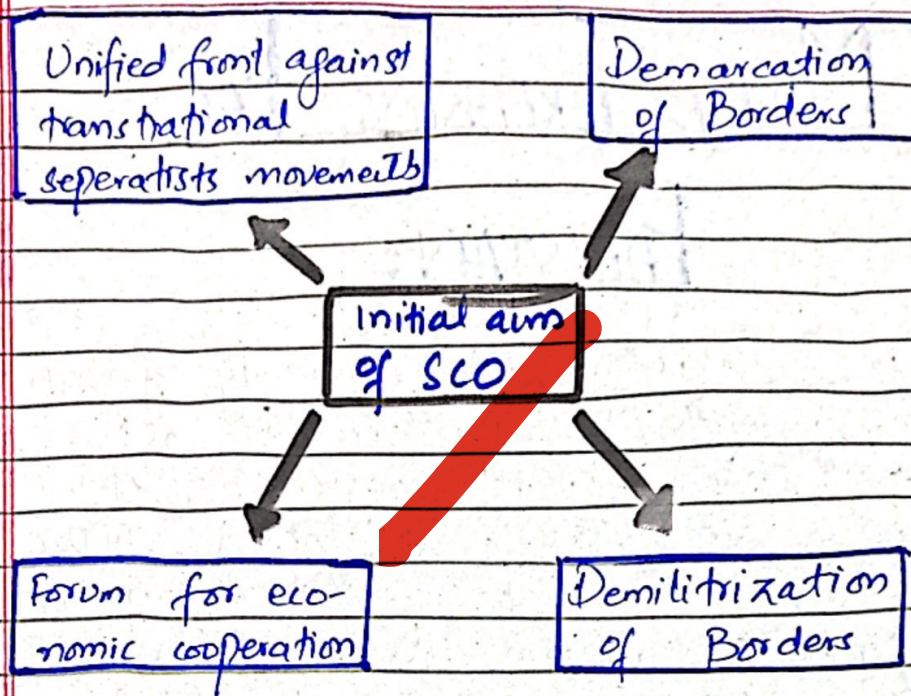 Unified front against
transnational
seperatists movements
Demarcation
of Borders
Initial aims
of SCO
Forum for eco-
nomic cooperation
Demilitrization
of Borders